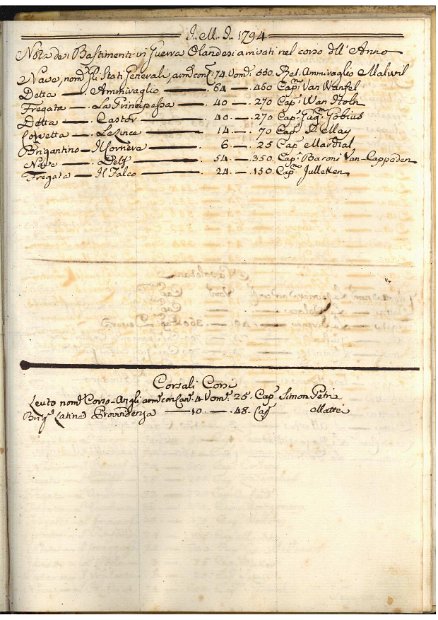 J. M. J. 1794
Nota de Bastimenti in Guerra Olandesi arrivati nel corso dell'Anno
Nave, nom. Gli Stati Generali, arm. con 74 Vom. 550
Detta — Ammiraglio — 64 — 450 Cap. Van Wanfel
Fregata — La Principessa — 40 — 270 Cap. Wan
Detta — Castor — 40 — 270 Cap.
Corvetta — — 14 — 70 Cap.
Brigantino — — 6 — 25 Cap. Mardial
Nave — Delft — 54 — 350 Cap. Baroni Van-Cappellen
Fregata — Il Falco — 24 — 150 Cap. Julleken
Corsali Corsi
Leuto nom. Corso-Angli arm. con Can. 4 Vom. 25 Cap. Simon Petri
Brig. Latino Provvidenza — 10 — 48 Cap. Mattei